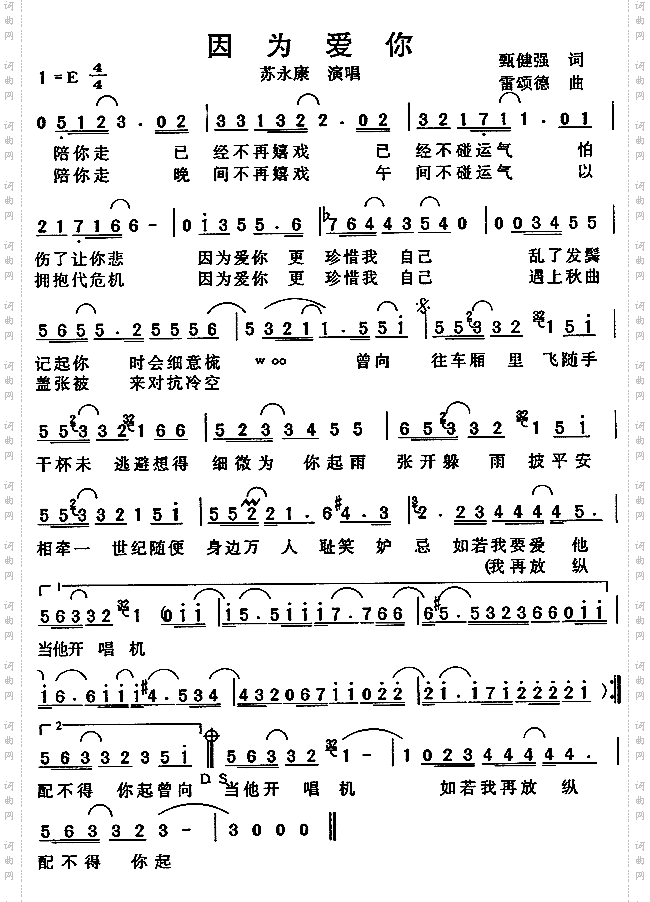 因为爱你
1=E 4/4
苏永康 演唱
甄健强 词
雷颂德 曲
0 5 1 2 3 . 0 2 | 3 3 1 3 2 2 . 0 2 | 3 2 1 7 1 1 . 0 1 |
陪你走 已 经不再嬉戏 已 经不碰运气 怕
陪你走 晚 间不再嬉戏 午 间不碰运气 以
2 1 7 1 6 6 - | 0 i 3 5 5 . 6 | b7 6 4 4 3 5 4 0 | 0 0 3 4 5 5 |
伤了让你悲 因为爱你 更 珍惜我 自己 乱了发鬓
拥抱代危机 因为爱你 更 珍惜我 自己 遇上秋曲
5 6 5 5 . 2 5 5 5 5 6 | 5 3 2 1 1 . 5 5 i | 5 5 3 3 2 1 5 i |
记起你 时会细意梳 woo 曾向 往车厢 里 飞随手
盖张被 来对抗冷空
5 5 3 3 2 1 6 6 | 5 2 3 3 4 5 5 | 6 5 3 3 2 1 5 i |
干杯未 逃避想得 细微为 你起雨 张开躲 雨 披平安
5 5 3 3 2 1 5 i | 5 5 2 2 1 . 6 #4 . 3 | 2 . 2 3 4 4 4 4 5 . |
相牵一 世纪随便 身边万 人 耻笑 妒 忌 如若我要爱 他
(我再放 纵
1
5 6 3 3 2 1 (0 i i | i 5 . 5 i i i 7 . 7 6 6 | 6 #5 . 5 3 2 3 6 6 0 i i |
当他开 唱 机
i 6 . 6 i i i #4 . 5 3 4 | 4 3 2 0 6 7 i i 0 2 2 | 2 i . i 7 i 2 2 2 2 i ) :||
2
5 6 3 3 2 3 5 i | 5 6 3 3 2 1 - | 1 0 2 3 4 4 4 4 4 . |
D S
配不得 你起曾向 当他开 唱 机 如若我再放 纵
5 6 3 3 2 3 - | 3 0 0 0 ||
配不得 你起
词曲网
词曲网
词曲网
词曲网
词曲网
词曲网
词曲网
词曲网
词曲网
词曲网
词曲网
词曲网